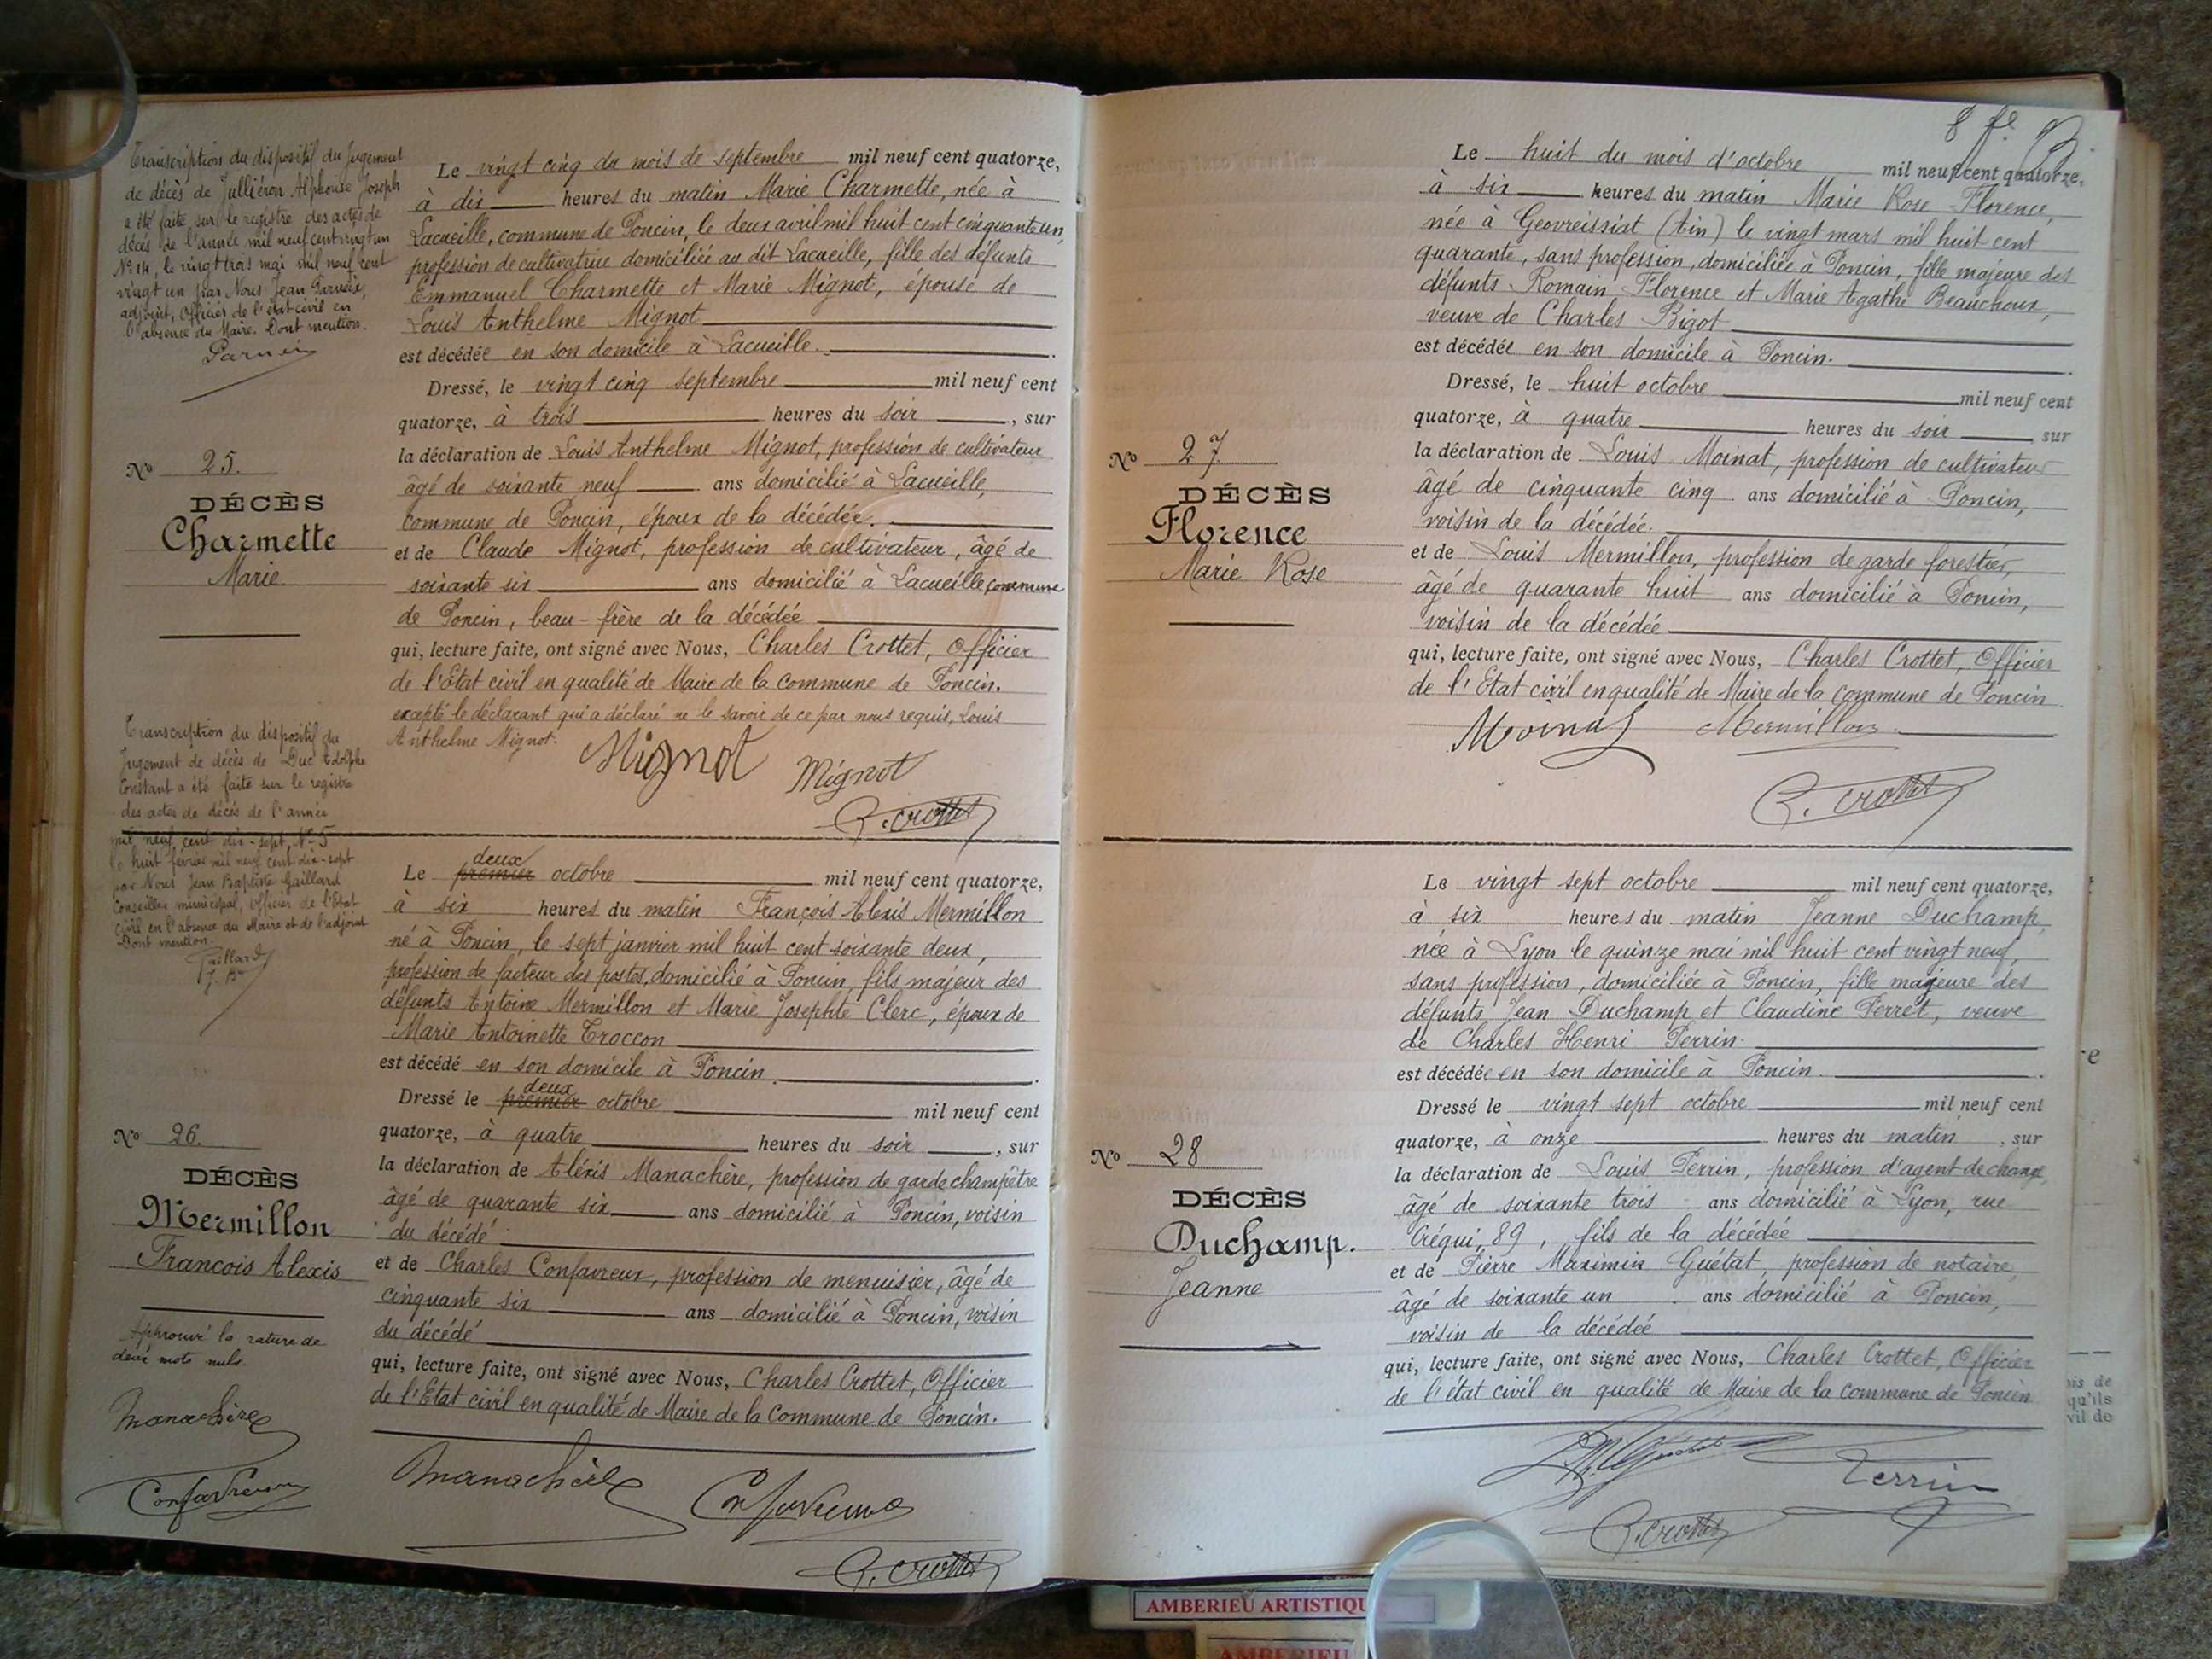 Transcription du dispositif du Jugement
de décès de Julliéron Alphonse Joseph
a été faite sur le registre des actes de
décès de l'année mil neuf cent vingt un
N° 14, le vingt trois mai mil neuf cent
vingt un par Nous Jean
adjoint, Officier de l'état civil en
l'absence du Maire. Dont mention.
N° 25.
DÉCÈS
Charmette
Marie
Le vingt cinq du mois de septembre mil neuf cent quatorze,
à dix heures du matin Marie Charmette, née à
Lacueille, commune de Poncin, le deux avril mil huit cent cinquante un,
profession de cultivatrice domiciliée au dit Lacueille, fille des défunts
Emmanuel Charmette et Marie Mignot, épouse de
Louis Anthelme Mignot
est décédée en son domicile à Lacueille.
Dressé, le vingt cinq septembre mil neuf cent
quatorze, à trois heures du soir, sur
la déclaration de Louis Anthelme Mignot, profession de cultivateur
âgé de soixante neuf ans domicilié à Lacueille,
commune de Poncin, époux de la décédée.
et de Claude Mignot, profession de cultivateur, âgé de
soixante six ans domicilié à Lacueille commune
de Poncin, beau-frère de la décédée
qui, lecture faite, ont signé avec Nous, Charles Crottet, Officier
de l'Etat civil en qualité de Maire de la commune de Poncin.
excepté le déclarant qui a déclaré ne le savoir de ce par nous requis, Louis
Anthelme Mignot.
Mignot
Mignot
C. Crottet
Transcription du dispositif du
Jugement de décès de Duc Adolphe
Constant a été faite sur le registre
des actes de décès de l'année
mil neuf cent dix-sept, N° 5
le huit février mil neuf cent dix-sept
par Nous Jean Baptiste Gaillard
Conseiller municipal, Officier de l'Etat
civil en l'absence du Maire et de l'adjoint
Dont mention.
Gaillard
J. Bte
N° 26.
DÉCÈS
Mermillon
Francois Alexis
Approuvé la rature de
deux mots nuls.
Manachère
Confavreux
deux
Le premier octobre mil neuf cent quatorze,
à six heures du matin François Alexis Mermillon
né à Poncin, le sept janvier mil huit cent soixante deux,
profession de facteur des postes, domicilié à Poncin, fils majeur des
défunts Antoine Mermillon et Marie Josephte Clerc, époux de
Marie Antoinette Troccon
est décédé en son domicile à Poncin.
deux
Dressé le premier octobre mil neuf cent
quatorze, à quatre heures du soir, sur
la déclaration de Aléxis Manachère, profession de garde champêtre
âgé de quarante six ans domicilié à Poncin, voisin
du décédé
et de Charles Confavreux, profession de menuisier, âgé de
cinquante six ans domicilié à Poncin, voisin
du décédé
qui, lecture faite, ont signé avec Nous, Charles Crottet, Officier
de l'Etat civil en qualité de Maire de la Commune de Poncin.
Manachère
Confavreux
C. Crottet
8 fe
N° 27
DÉCÈS
Florence
Marie Rose
Le huit du mois d'octobre mil neuf cent quatorze,
à six heures du matin Marie Rose Florence,
née à Geovreissiat (Ain) le vingt mars mil huit cent
quarante, sans profession, domiciliée à Poncin, fille majeure des
défunts Romain Florence et Marie Agathe Beauchoux,
veuve de Charles Bigot
est décédée en son domicile à Poncin.
Dressé, le huit octobre mil neuf cent
quatorze, à quatre heures du soir, sur
la déclaration de Louis Moinat, profession de cultivateur
âgé de cinquante cinq ans domicilié à Poncin,
voisin de la décédée.
et de Louis Mermillon, profession de garde forestier,
âgé de quarante huit ans domicilié à Poncin,
voisin de la décédée
qui, lecture faite, ont signé avec Nous, Charles Crottet, Officier
de l'Etat civil en qualité de Maire de la commune de Poncin
Moinat
Mermillon
C. Crottet
N° 28
DÉCÈS
Duchamp.
Jeanne
Le vingt sept octobre mil neuf cent quatorze,
à six heures du matin Jeanne Duchamp,
née à Lyon le quinze mai mil huit cent vingt neuf,
sans profession, domiciliée à Poncin, fille majeure des
défunts Jean Duchamp et Claudine Perret, veuve
de Charles Henri Perrin.
est décédée en son domicile à Poncin.
Dressé le vingt sept octobre mil neuf cent
quatorze, à onze heures du matin, sur
la déclaration de Louis Perrin, profession d'agent de change,
âgé de soixante trois ans domicilié à Lyon, rue
Créqui, 89, fils de la décédée
et de Pierre Maximin Guétat, profession de notaire
âgé de soixante un ans domicilié à Poncin,
voisin de la décédée
qui, lecture faite, ont signé avec Nous, Charles Crottet, Officier
de l'état civil en qualité de Maire de la commune de Poncin
Perrin
C. Crottet
is de
qu'ils
vil de
AMBERIEU ARTISTIQU
AMBERIEU